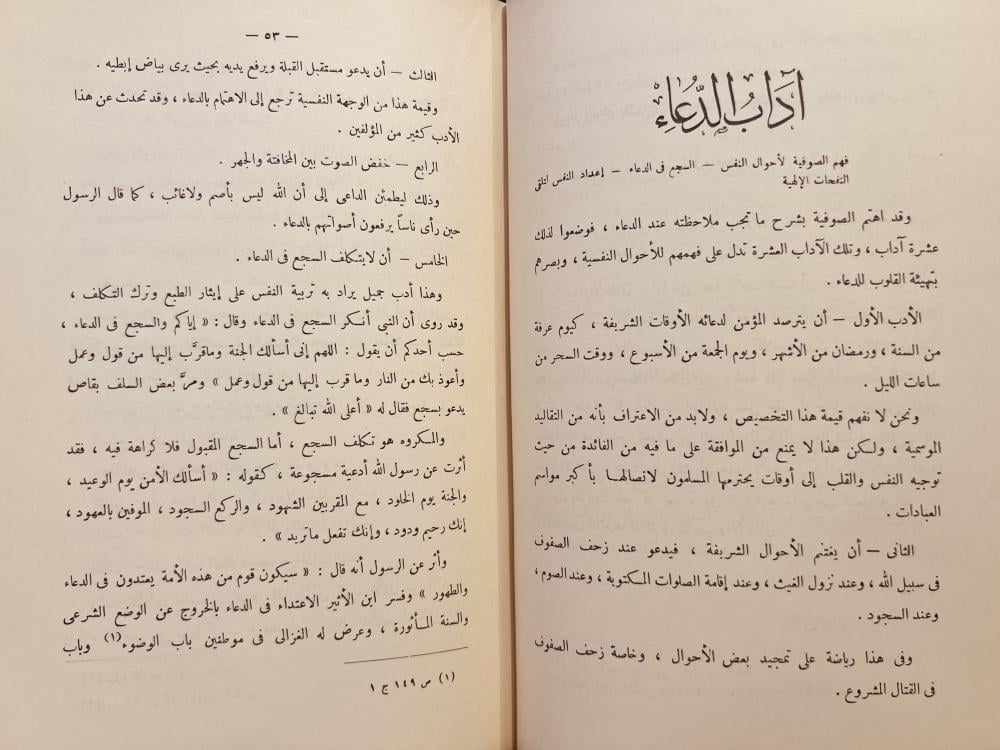 آدَابُ الدُّعَاءِ
فهم الصوفية لأحوال النفس — السجع فى الدعاء — إعداد النفس لتلقى
النفحات الإلهية
وقد اهتم الصوفية بشرح ما تجب ملاحظته عند الدعاء ، فوضعوا لذلك
عشرة آداب ، وتلك الآداب العشرة تدل على فهمهم للأحوال النفسية ، وبصرهم
بتهيئة القلوب للدعاء .
الأدب الأول — أن يترصد المؤمن لدعائه الأوقات الشريفة ، كيوم عرفة
من السنة ، ورمضان من الأشهر ، ويوم الجمعة من الأسبوع ، ووقت السحر من
ساعات الليل .
ونحن لا نفهم قيمة هذا التخصيص ، ولابد من الاعتراف بأنه من التقاليد
الموسمية ، ولكن هذا لا يمنع من الموافقة على ما فيه من الفائدة من حيث
توجيه النفس والقلب إلى أوقات يحترمها المسلمون لاتصالها بأكبر مواسم
العبادات .
الثانى — أن يغتنم الأحوال الشريفة ، فيدعو عند زحف الصفوف
فى سبيل الله ، وعند نزول الغيث ، وعند إقامة الصلوات المكتوبة ، وعند الصوم ،
وعند السجود .
وفى هذا رياضة على تمجيد بعض الأحوال ، وخاصة زحف الصفوف
فى القتال المشروع .
— ٥٣ —
الثالث — أن يدعو مستقبل القبلة ويرفع يديه بحيث يرى بياض إبطيه .
وقيمة هذا من الوجهة النفسية ترجع إلى الاهتمام بالدعاء ، وقد تحدث عن هذا
الأدب كثير من المؤلفين .
الرابع — خفض الصوت بين المخافتة والجهر .
وذلك ليطمئن الداعى إلى أن الله ليس بأصم ولاغائب ، كما قال الرسول
حين رأى ناساً يرفعون أصواتهم بالدعاء .
الخامس — أن لايتكلف السجع فى الدعاء .
وهذا أدب جميل يراد به تربية النفس على إيثار الطبع وترك التكلف ،
وقد روى أن النبى أنكر السجع فى الدعاء وقال : « إياكم والسجع فى الدعاء ،
حسب أحدكم أن يقول : اللهم إنى أسألك الجنة وماقرَّب إليها من قول وعمل
وأعوذ بك من النار وما قرب إليها من قول وعمل » ومرَّ بعض السلف بقاص
يدعو بسجع فقال له « أعلى الله تبالغ » .
والمكروه هو تكلف السجع ، أما السجع المقبول فلا كراهة فيه ، فقد
أثرت عن رسول الله أدعية مسجوعة ، كقوله : « أسألك الأمن يوم الوعيد ،
والجنة يوم الخلود ، مع المقربين الشهود ، والركع السجود ، الموفين بالعهود ،
إنك رحيم ودود ، وإنك تفعل ماتريد » .
وأثر عن الرسول أنه قال : « سيكون قوم من هذه الأمة يعتدون فى الدعاء
والطهور » وفسر ابن الأثير الاعتداء فى الدعاء بالخروج عن الوضع الشرعى
والسنة المأثورة ، وعرض له الغزالى فى موطنين باب الوضوء (١) وباب
(١) ص ١٤٩ ج ١